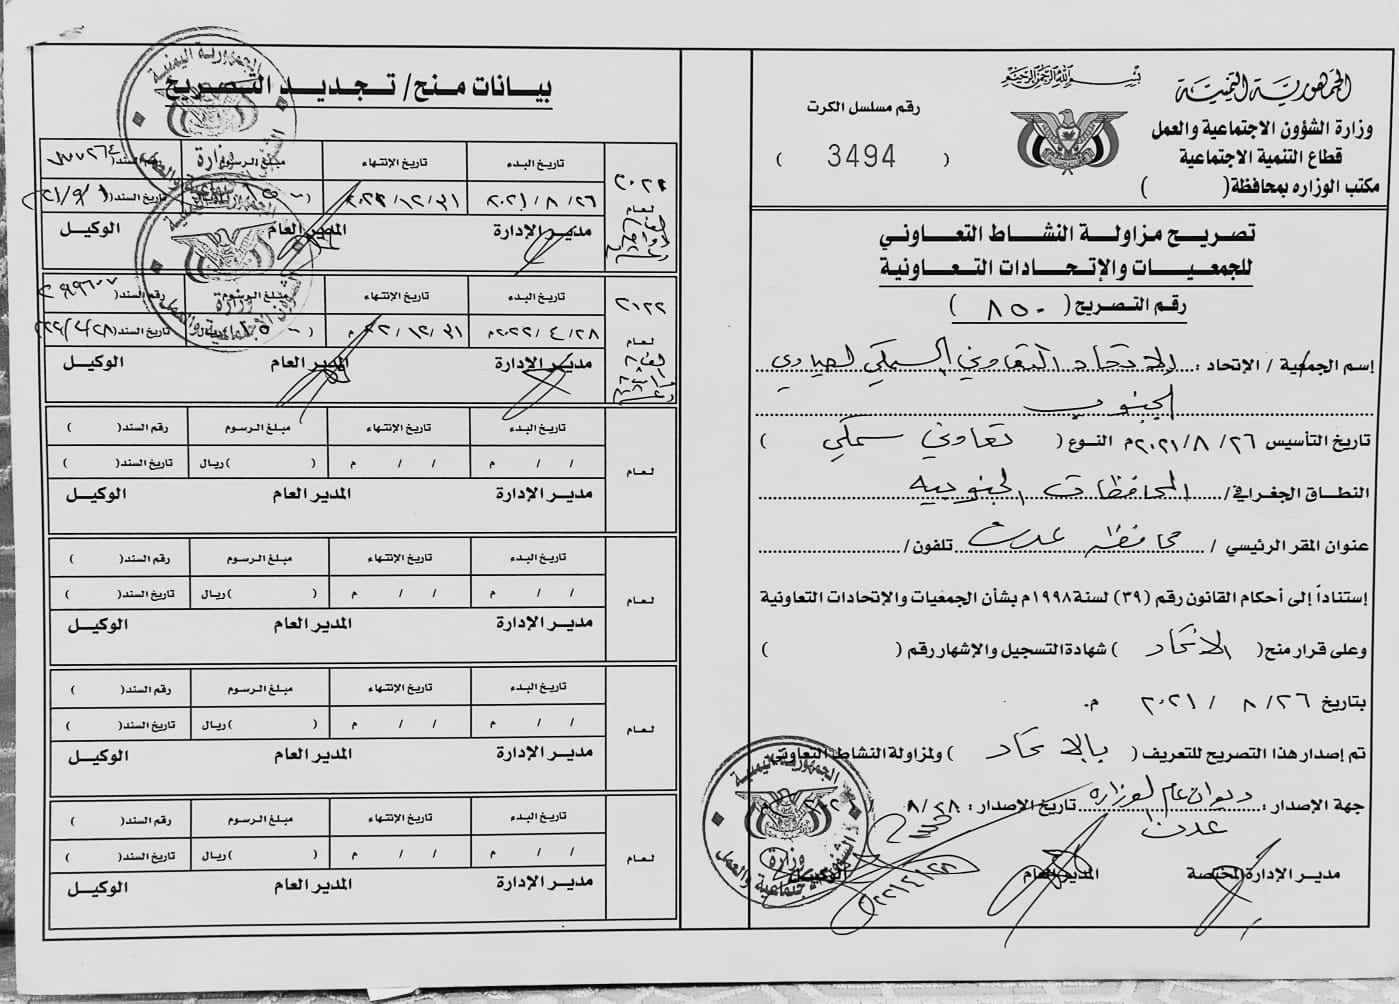 بسم الله الرحمن الرحيم
الجمهورية اليمنية
وزارة الشؤون الاجتماعية والعمل
قطاع التنمية الاجتماعية
مكتب الوزاره بمحافظة( )
رقم مسلسل الكرت
( 3494 )
تصريح مزاولة النشاط التعاوني
للجمعيات والإتحادات التعاونية
رقم التصريح( ٨٥٠ )
إسم الجمعية / الإتحاد : الاتحاد التعاوني السمكي لصيادي
الجنوب
تاريخ التأسيس ٢٦ / ٨ / ٢٠٢١م النوع( تعاوني سمكي )
النطاق الجغرافي/ المحافظات الجنوبيه
عنوان المقر الرئيسي / محافظة عدن تلفون/
إستناداً إلى أحكام القانون رقم (٣٩) لسنة ١٩٩٨م بشأن الجمعيات والإتحادات التعاونية
وعلى قرار منح( الاتحاد ) شهادة التسجيل والإشهار رقم ( )
بتاريخ ٢٦ / ٨ / ٢٠٢١ م.
تم إصدار هذا التصريح للتعريف ( بالاتحاد ) ولمزاولة النشاط التعاوني
جهة الإصدار : ديوان عام الوزاره تاريخ الإصدار : ٢٨ / ٨ /
عدن
مدير الإدارة المختصة المدير العام الوكيل
٢٨ / ٤ / ٢٢
الجمهورية اليمنية
وزارة
الشؤون الاجتماعية والعمل
بيانات منح/ تجديد التصريح
٢٠٢١ تاريخ البدء تاريخ الإنتهاء مبلغ الرسوم رقم السند(
لعام ٢٦ / ٨ / ٢٠٢١ ٣١ / ١٢ / تاريخ السند( ١ / ٩ / ٢١
مدير الإدارة المدير العام الوكيل
الجمهورية اليمنية
وزارة
الشؤون الاجتماعية والعمل
٢٠٢٢ تاريخ البدء تاريخ الإنتهاء مبلغ الرسوم رقم السند(
لعام ٢٨ / ٤ / ٢٠٢٢م ٣١ / ١٢ / ٢٢ م تاريخ السند( ٢٨ / ٤ / ٢٢
مدير الإدارة المدير العام الوكيل
الجمهورية اليمنية
وزارة
الشؤون الاجتماعية والعمل
تاريخ البدء تاريخ الإنتهاء مبلغ الرسوم رقم السند( )
لعام / / م / / م ( )ريال تاريخ السند( )
مدير الإدارة المدير العام الوكيل
تاريخ البدء تاريخ الإنتهاء مبلغ الرسوم رقم السند( )
لعام / / م / / م ( )ريال تاريخ السند( )
مدير الإدارة المدير العام الوكيل
تاريخ البدء تاريخ الإنتهاء مبلغ الرسوم رقم السند( )
لعام / / م / / م ( )ريال تاريخ السند( )
مدير الإدارة المدير العام الوكيل
تاريخ البدء تاريخ الإنتهاء مبلغ الرسوم رقم السند( )
لعام / / م / / م ( )ريال تاريخ السند( )
مدير الإدارة المدير العام الوكيل